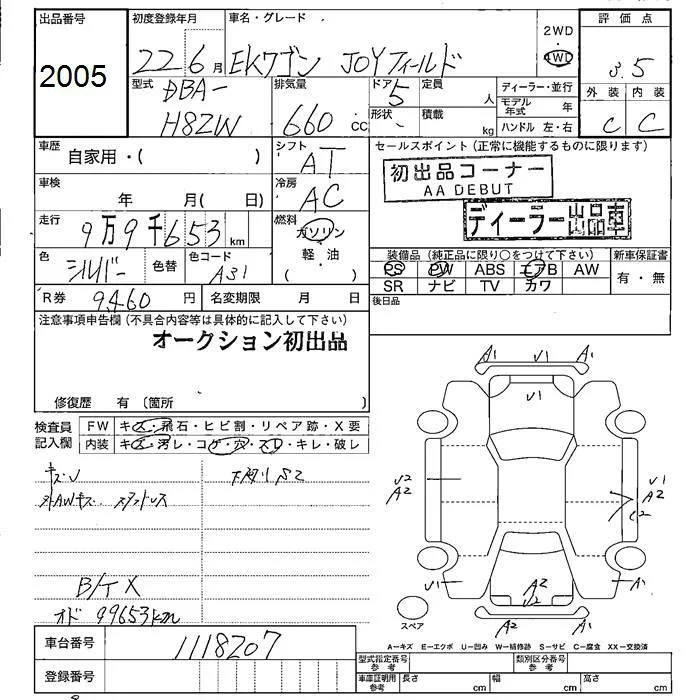 出品番号
2005
初度登録年月
22 6 月
車名・グレード
EKワゴン JOYフィールド
2WD
4WD
評価点
3.5
型式
DBA-
H82W
排気量
660 cc
ドア 5
形状
定員 人
積載 kg
ディーラー・並行
モデル年式 年
ハンドル 左・右
外装 内装
C C
車歴
自家用・( )
シフト
AT
セールスポイント (正常に機能するものに限ります)
初出品コーナー
AA DEBUT
ディーラー出品車
車検
年 月( 日)
冷房
AC
走行
9万9千653 km
燃料
ガソリン
軽・油
( )
色
シルバー
色替
色コード
A31
装備品 (純正品に限り○をつけて下さい)
新車保証書
PS PW ABS エアB AW
SR ナビ TV カワ
有・無
R券 9,460 円
名変期限 月 日
後日品
注意事項申告欄 (不具合内容等は具体的に記入して下さい)
オークション初出品
修復歴 有 (箇所 )
検査員
記入欄
FW キズ・飛石・ヒビ割・リペア跡・X要
内装 キズ・汚レ・コゲ・穴・スレ・キレ・破レ
キズU
下廻りS2
外AWキズ スタットレス
B/T X
オド 99653km
A1 U1 A1
U1
U2
A2
U1
A2
C2
U1
A2
U2
A1
A2
A1
スペア
A-キズ E-エクボ U-凹み W-補修跡 S-サビ C-腐食 XX-交換済
車台番号
1118207
登録番号
型式指定番号
参考
類別区分番号
参考
車庫証明用
参考
長さ cm
幅 cm
高さ cm